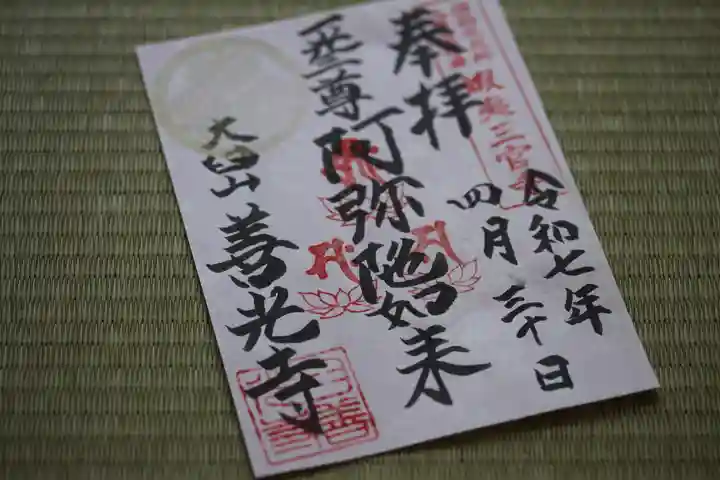 奉拝
令和七年
四月三十日
一光三尊
阿弥陀如来
大臼山
善光寺